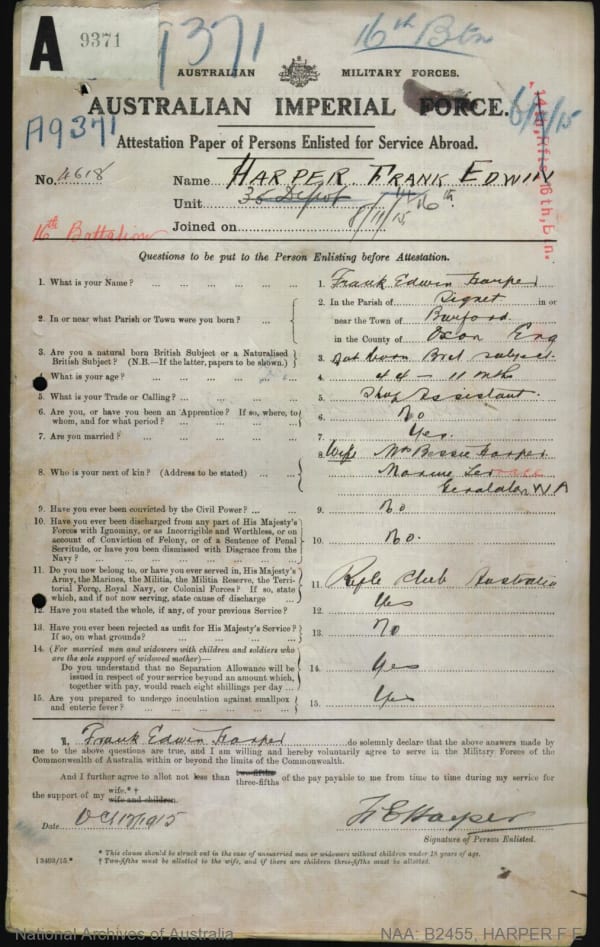 A 9371
9371
16th Btn
AUSTRALIAN MILITARY FORCES.
AUSTRALIAN IMPERIAL FORCE.
A9371
Attestation Paper of Persons Enlisted for Service Abroad.
No. 4618 Name HARPER FRANK EDWIN
Unit 36 Depot 16th
16th Battalion
Joined on 8/11/15
Questions to be put to the Person Enlisting before Attestation.
1. What is your Name? ... ... ... ... 1. Frank Edwin Harper
2. In or near what Parish or Town were you born? ... 2. In the Parish of Signet in or
near the Town of Burford
in the County of Oxon Eng
3. Are you a natural born British Subject or a Naturalised
British Subject? (N.B.—If the latter, papers to be shown.) 3. Nat born Brit subject
4. What is your age? ... ... ... 4. 44 - 11 mths
5. What is your Trade or Calling? ... ... ... 5. Shop Assistant
6. Are you, or have you been an Apprentice? If so, where, to
whom, and for what period? ... ... ... 6. No
7. Are you married? ... ... ... ... 7. Yes.
8. Who is your next of kin? (Address to be stated) ... ... 8. Wife Mrs Bessie Harper
Marine Terrace
Geraldton WA
9. Have you ever been convicted by the Civil Power? ... 9. No
10. Have you ever been discharged from any part of His Majesty's
Forces with Ignominy, or as Incorrigible and Worthless, or on
account of Conviction of Felony, or of a Sentence of Penal
Servitude, or have you been Dismissed with Disgrace from the
Navy? ... ... ... ... 10. No.
11. Do you now belong to, or have you ever served in, His Majesty's
Army, the Marines, the Militia, the Militia Reserve, the Terri-
torial Force, Royal Navy, or Colonial Forces? If so, state
which, and if not now serving, state cause of discharge ... 11. Rifle Club Australia
12. Have you stated the whole, if any, of your previous Service? 12. Yes
13. Have you ever been rejected as unfit for His Majesty's Service?
If so, on what grounds? ... ... ... 13. No
14. (For married men and widowers with children and soldiers who
are the sole support of widowed mother)—
Do you understand that no Separation Allowance will be
issued in respect of your service beyond an amount which,
together with pay, would reach eight shillings per day ... 14. Yes
15. Are you prepared to undergo inoculation against smallpox
and enteric fever? ... ... ... ... 15. Yes
I, Frank Edwin Harper do solemnly declare that the above answers made by
me to the above questions are true, and I am willing and hereby voluntarily agree to serve in the Military Forces of the
Commonwealth of Australia within or beyond the limits of the Commonwealth.
And I further agree to allot not less than two-fifths three-fifths of the pay payable to me from time to time during my service for
the support of my wife.* † wife and children.
Date Oct 19/1915 F E Harper
Signature of Person Enlisted.
* This clause should be struck out in the case of unmarried men or widowers without children under 18 years of age.
† Two-fifths must be allotted to the wife, and if there are children three-fifths must be allotted.
13469/15.*
National Archives of Australia NAA: B2455, HARPER F E